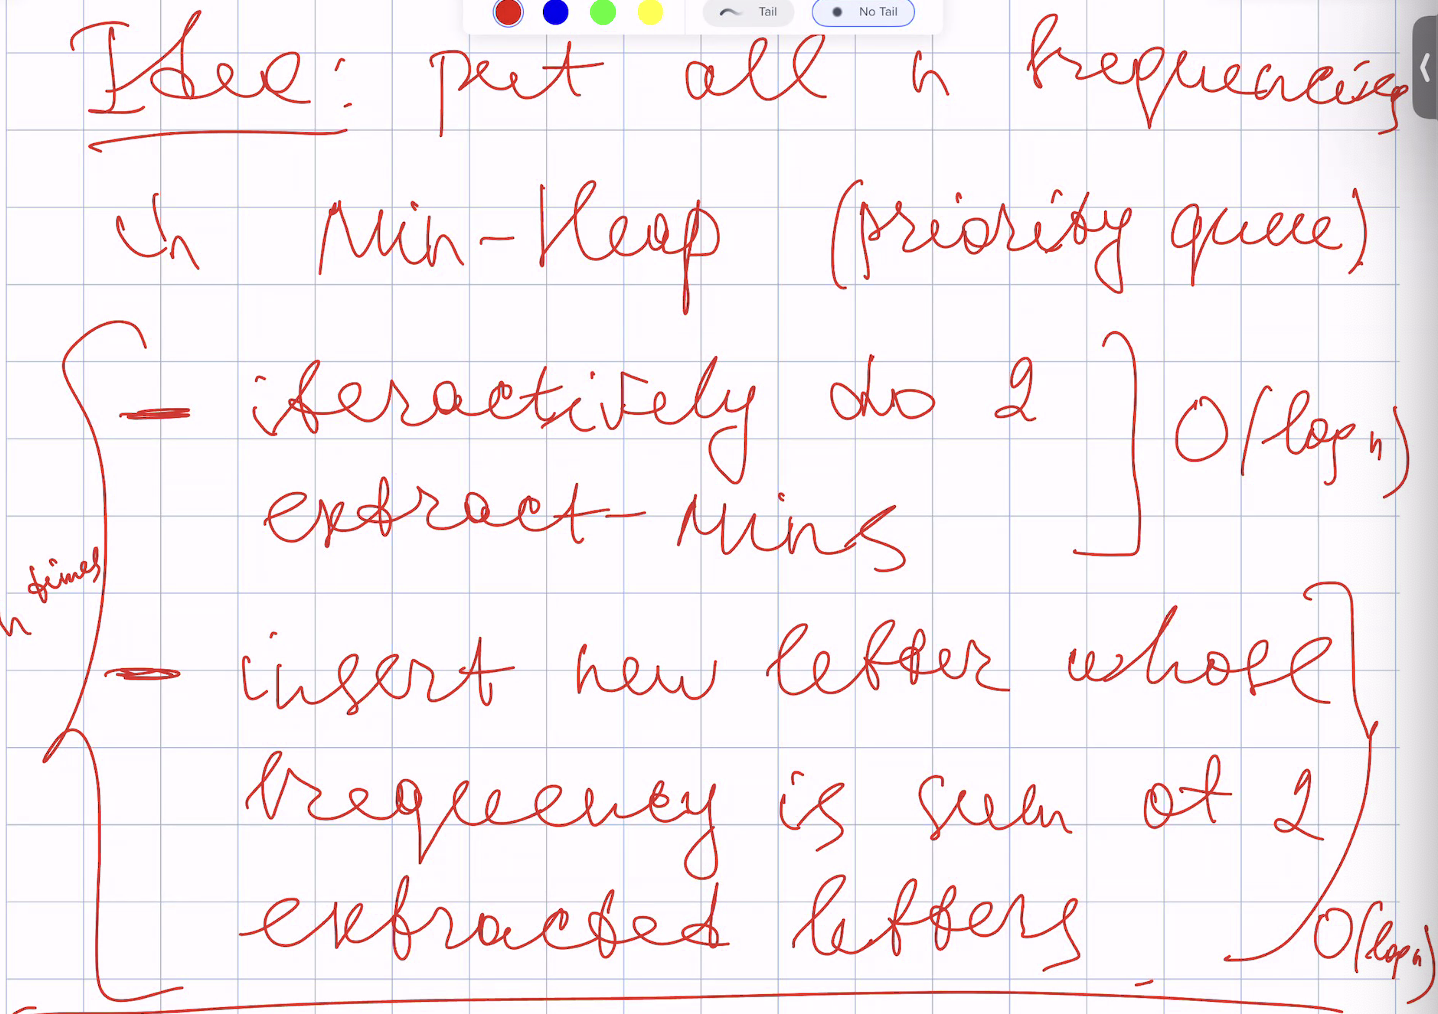 Tail No Tail
Idea: put all n frequencies
in Min-Heap (priority queue)
- iteractively do 2 O(log n)
extract-Mins
n times
- insert new letter whose
frequency is sum of 2
extracted letters O(log n)